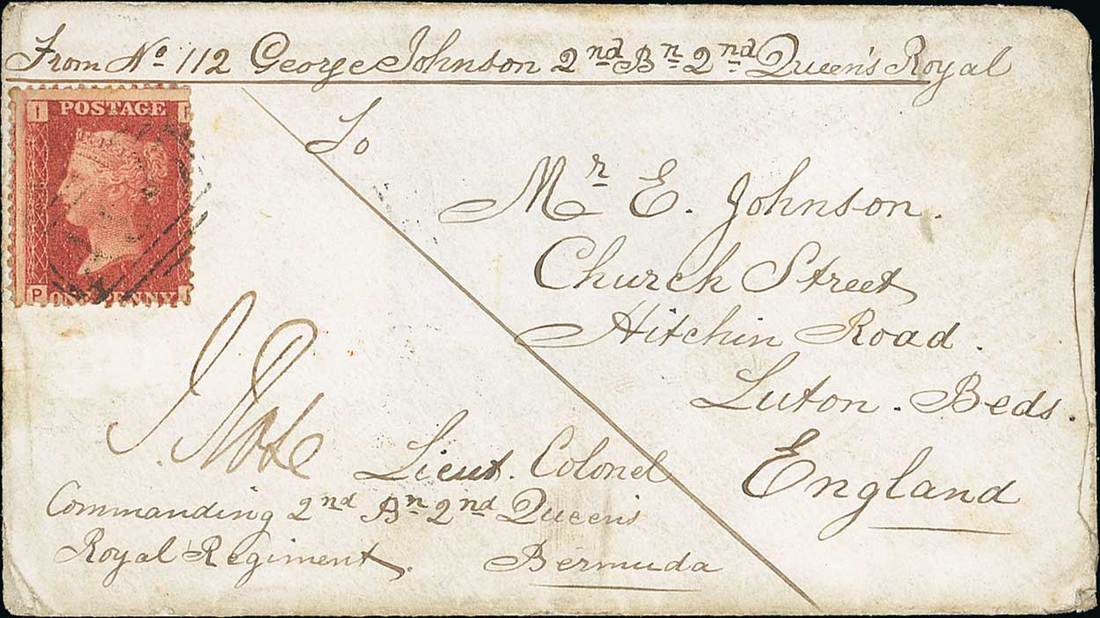 From No 112 George Johnson 2nd Bn 2nd Queen's Royal
I POSTAGE I
P ONE PENNY
To
Mr E. Johnson.
Church Street
Hitchin Road.
Luton. Beds.
England
Lieut. Colonel
Commanding 2nd Bn 2nd Queens
Royal Regiment.
Bermuda